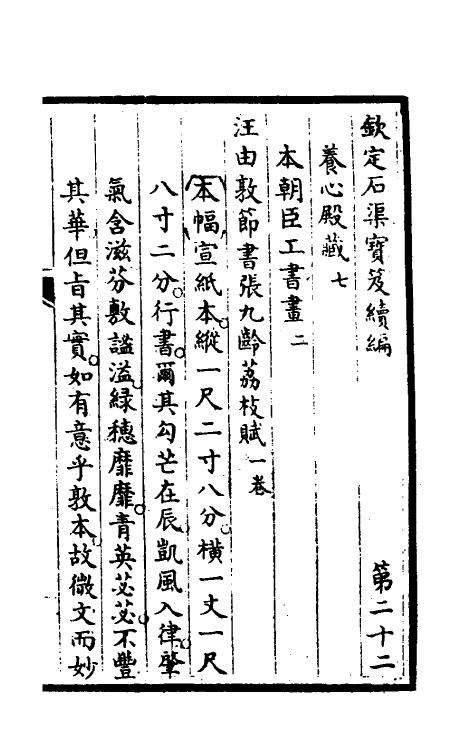 欽定石渠寳笈續編　第二十二
養心殿藏七
本朝臣工書畫二
汪由敦節書張九齡荔枝賦一卷
本幅宣紙本縱一尺二寸八分横一丈一尺
八寸二分行書爾其勾芒在辰凱風入律肇
氣含滋芬敷謐溢緑穗靡靡青英苾苾不豐
其華但㫖其實如有意乎敦本故微文而妙